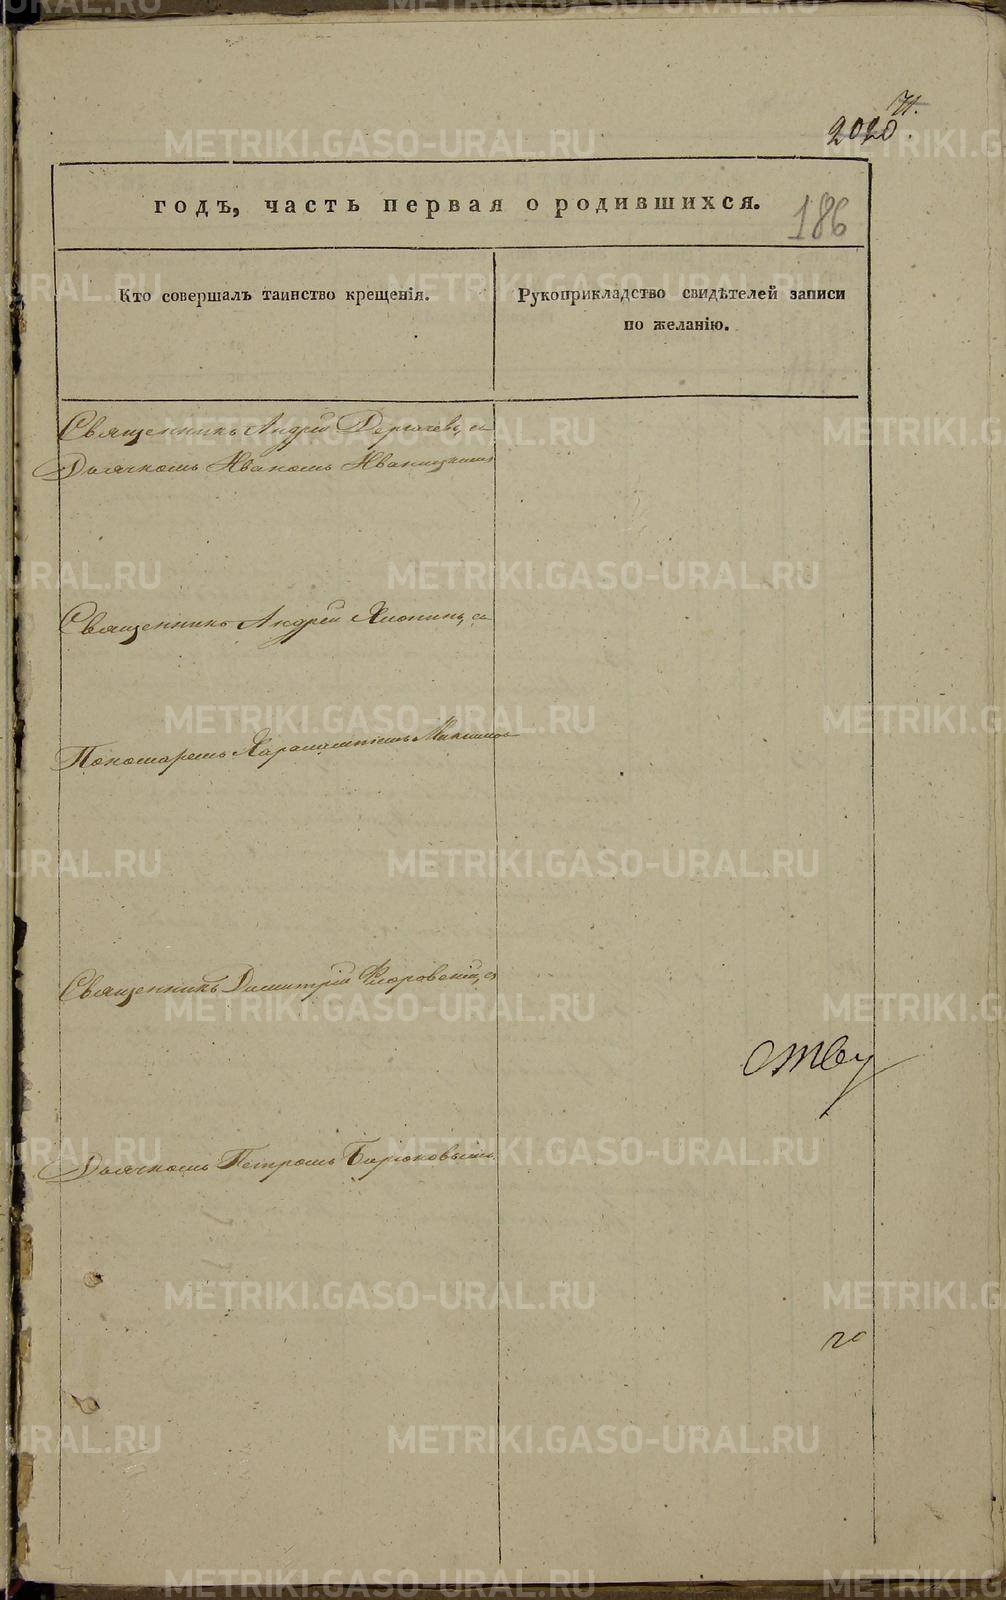 71.
2020.
годъ, часть первая о родившихся.
186
Кто совершалъ таинство крещенія.
Рукоприкладство свидѣтелей записи
по желанію.
Священникъ Андрей Дергачевъ, съ
Дьячкомъ Иваномъ Иваницкимъ
Священникъ Андрей Яхонинъ, съ
Пономаремъ Харалампіемъ
Священникъ Димитрій Флоровскій, съ
Дьячкомъ Петромъ Бирюковымъ.
METRIKI.GASO-URAL.RU